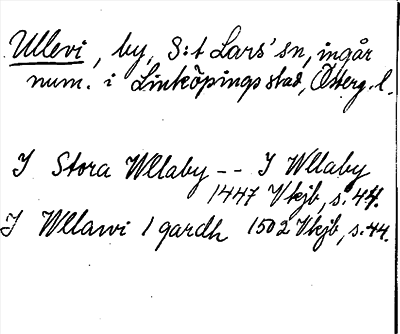 Ullevi, by, S:t Lars' sn, ingår
num. i Linköpings stad, Österg. l.
J Stora Wllaby -- J Wllaby
1447 Vkjb, s. 44.
J Wllawi 1 gardh 1502 Vkjb, s. 44.